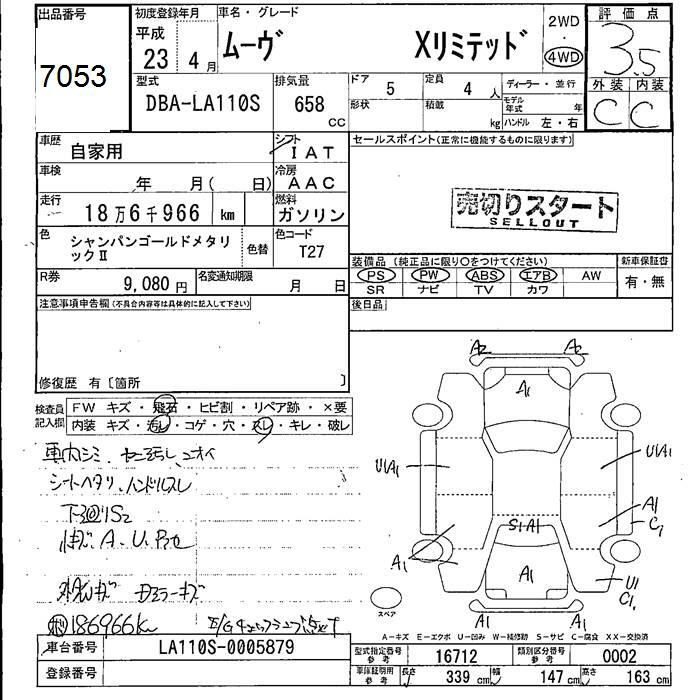 出品番号
7053
初度登録年月
平成
23年4月
車名・グレード
ムーヴ Xリミテッド
2WD
・
4WD
評価点
3.5
外装 内装
C C
型式
DBA-LA110S
排気量
658
CC
ドア 5
定員 4人
形状
積載 kg
ディーラー・並行
モデル年式 年
ハンドル 左・右
車歴
自家用
シフト
IAT
車検
年 月( 日)
冷房
AAC
走行
18万6千966 km
燃料
ガソリン
色
シャンパンゴールドメタリ
ックⅡ
色替
色コード
T27
R券
9,080円
名変通知期限
月 日
セールスポイント(正常に機能するものに限ります)
売切りスタート
SELLOUT
装備品 (純正品に限り○をつけてください)
PS PW ABS エアB AW
SR ナビ TV カワ
新車保証書
有・無
後日品
注意事項申告欄(不具合内容等は具体的に記入して下さい)
修復歴 有〔箇所 〕
検査員
記入欄
FW キズ・飛石・ヒビ割・リペア跡・×要
内装 キズ・汚レ・コゲ・穴・スレ・キレ・破レ
車内シミ、ヤニ汚レ、ニオイ
シートヘタリ、ハンドルスレ
下回りS2
A.U.
186966km
A2 A2
A1
U1A1 U1A1
A1
C1
S1A1
A1
A1
U1
C1
A1 A1
スペア
A−キズ E−エクボ U−凹み W−補修跡 S−サビ C−腐食 XX−交換済
車台番号
LA110S-0005879
登録番号
型式指定番号
参考
16712
類別区分番号
参考
0002
車庫証明用
参考
長さ 339 cm
幅 147 cm
高さ 163 cm